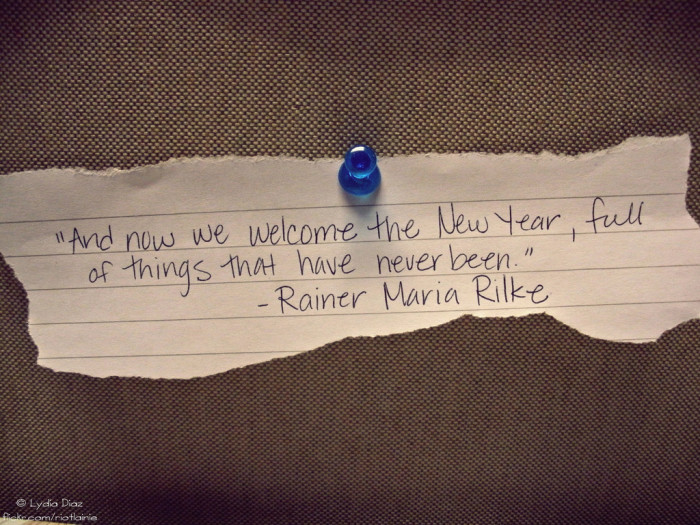 "And now we welcome the New Year, full
of things that have never been."
-Rainer Maria Rilke
© Lydia Diaz
flickr.com/riotlainie